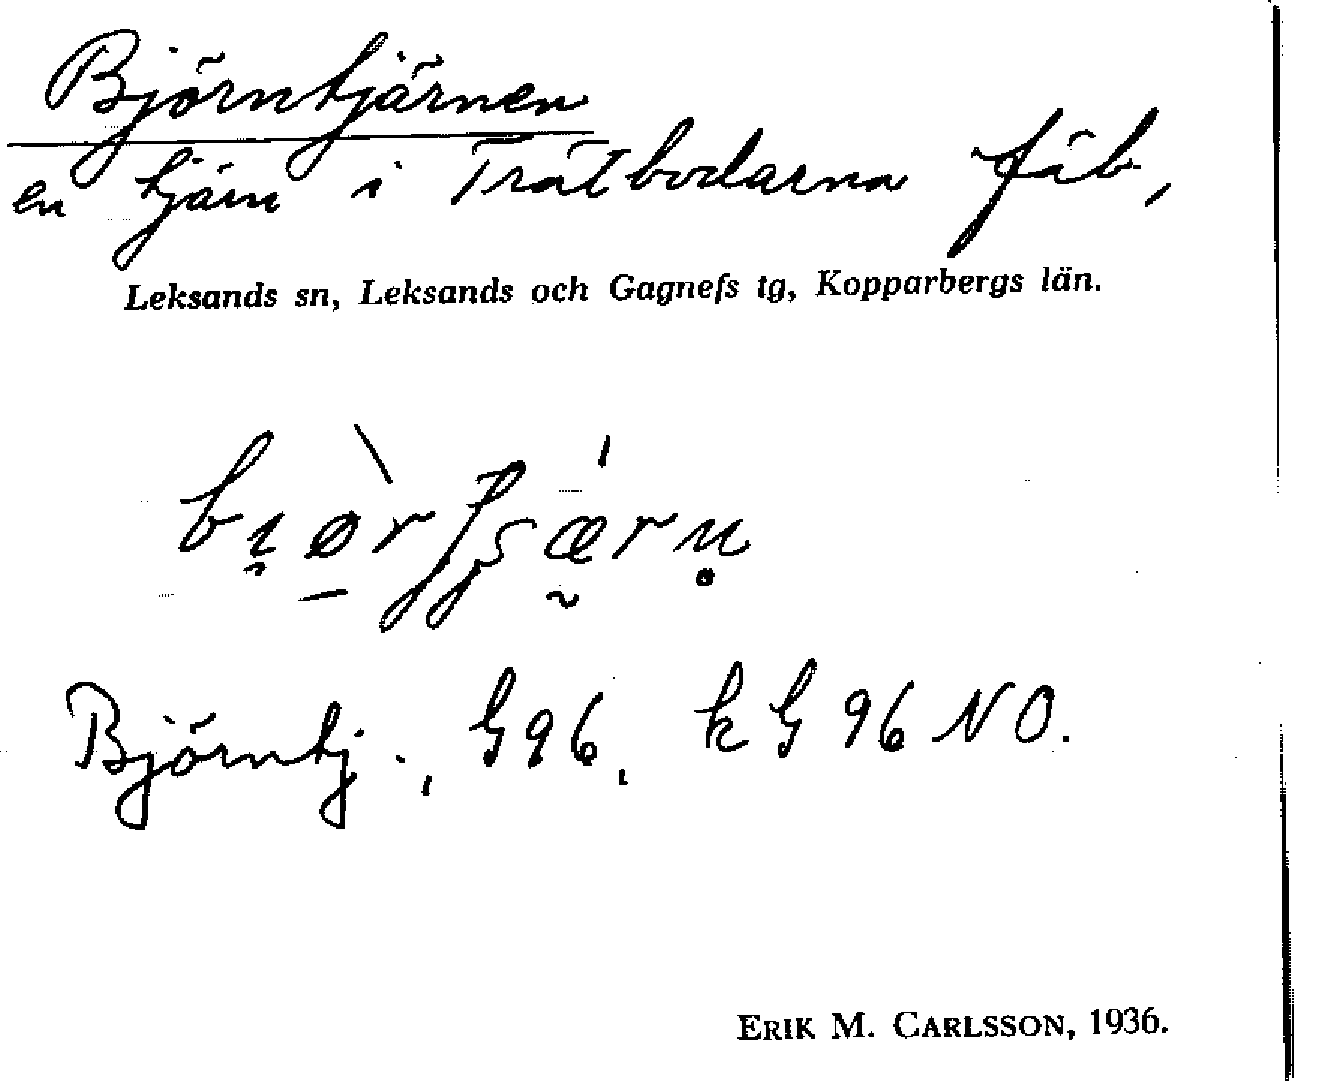 Björntjärnen
en tjärn i Trätbodarna fäb.,
Leksands sn, Leksands och Gagnefs tg, Kopparbergs län.
Björntj., G96, k G 96 NO.
ERIK M. CARLSSON, 1936.